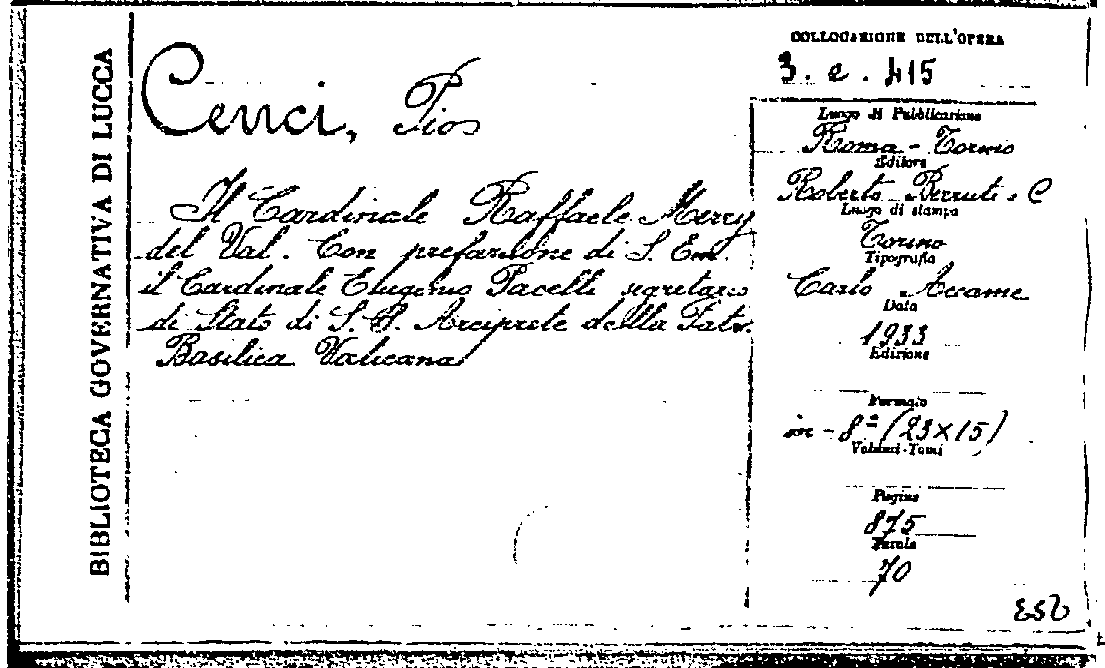 BIBLIOTECA GOVERNATIVA DI LUCCA
Cenci, Pio
Il Cardinale Raffaele Merry
del Val. Con prefazione di S. Em.
il Cardinale Eugenio Pacelli segretario
di Stato di S. S. Arciprete della Patr.
Basilica Vaticana
COLLOCAZIONE DELL'OPERA
3. e. 415
Luogo di Pubblicazione
Roma - Torino
Editore
Roberto Berruti e C
Luogo di stampa
Torino
Tipografia
Carlo Accame
Data
1933
Edizione
Formato
in - 8° (23×15)
Volumi-Tomi
Pagine
875
Tavole
70